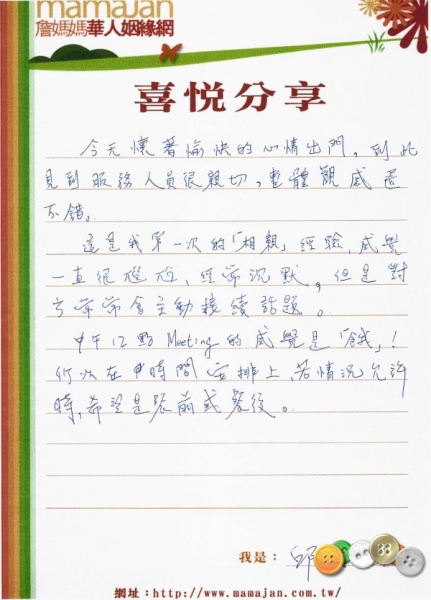 mamaJan
詹媽媽華人姻緣網
喜悅分享
今天懷著愉快的心情出門，到此
見到服務人員很親切，整體觀感還
不錯。
這是我第一次的「相親」經驗，感覺
一直很尷尬，經常沉默，但是對
方常常會主動接續話題。
中午12點Meeting的感覺是「餓」！
所以在時間安排上，若情況允許
時，希望是飯前或餐後。
我是：邱
33
網址：http://www.mamajan.com.tw/